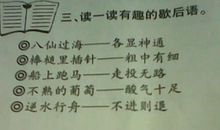 三、读一读有趣的歇后语。
◎八仙过海——各显神通
◎棒槌里插针——粗中有细
◎船上跑马——走投无路
◎不熟的葡萄——酸气十足
◎逆水行舟——不进则退